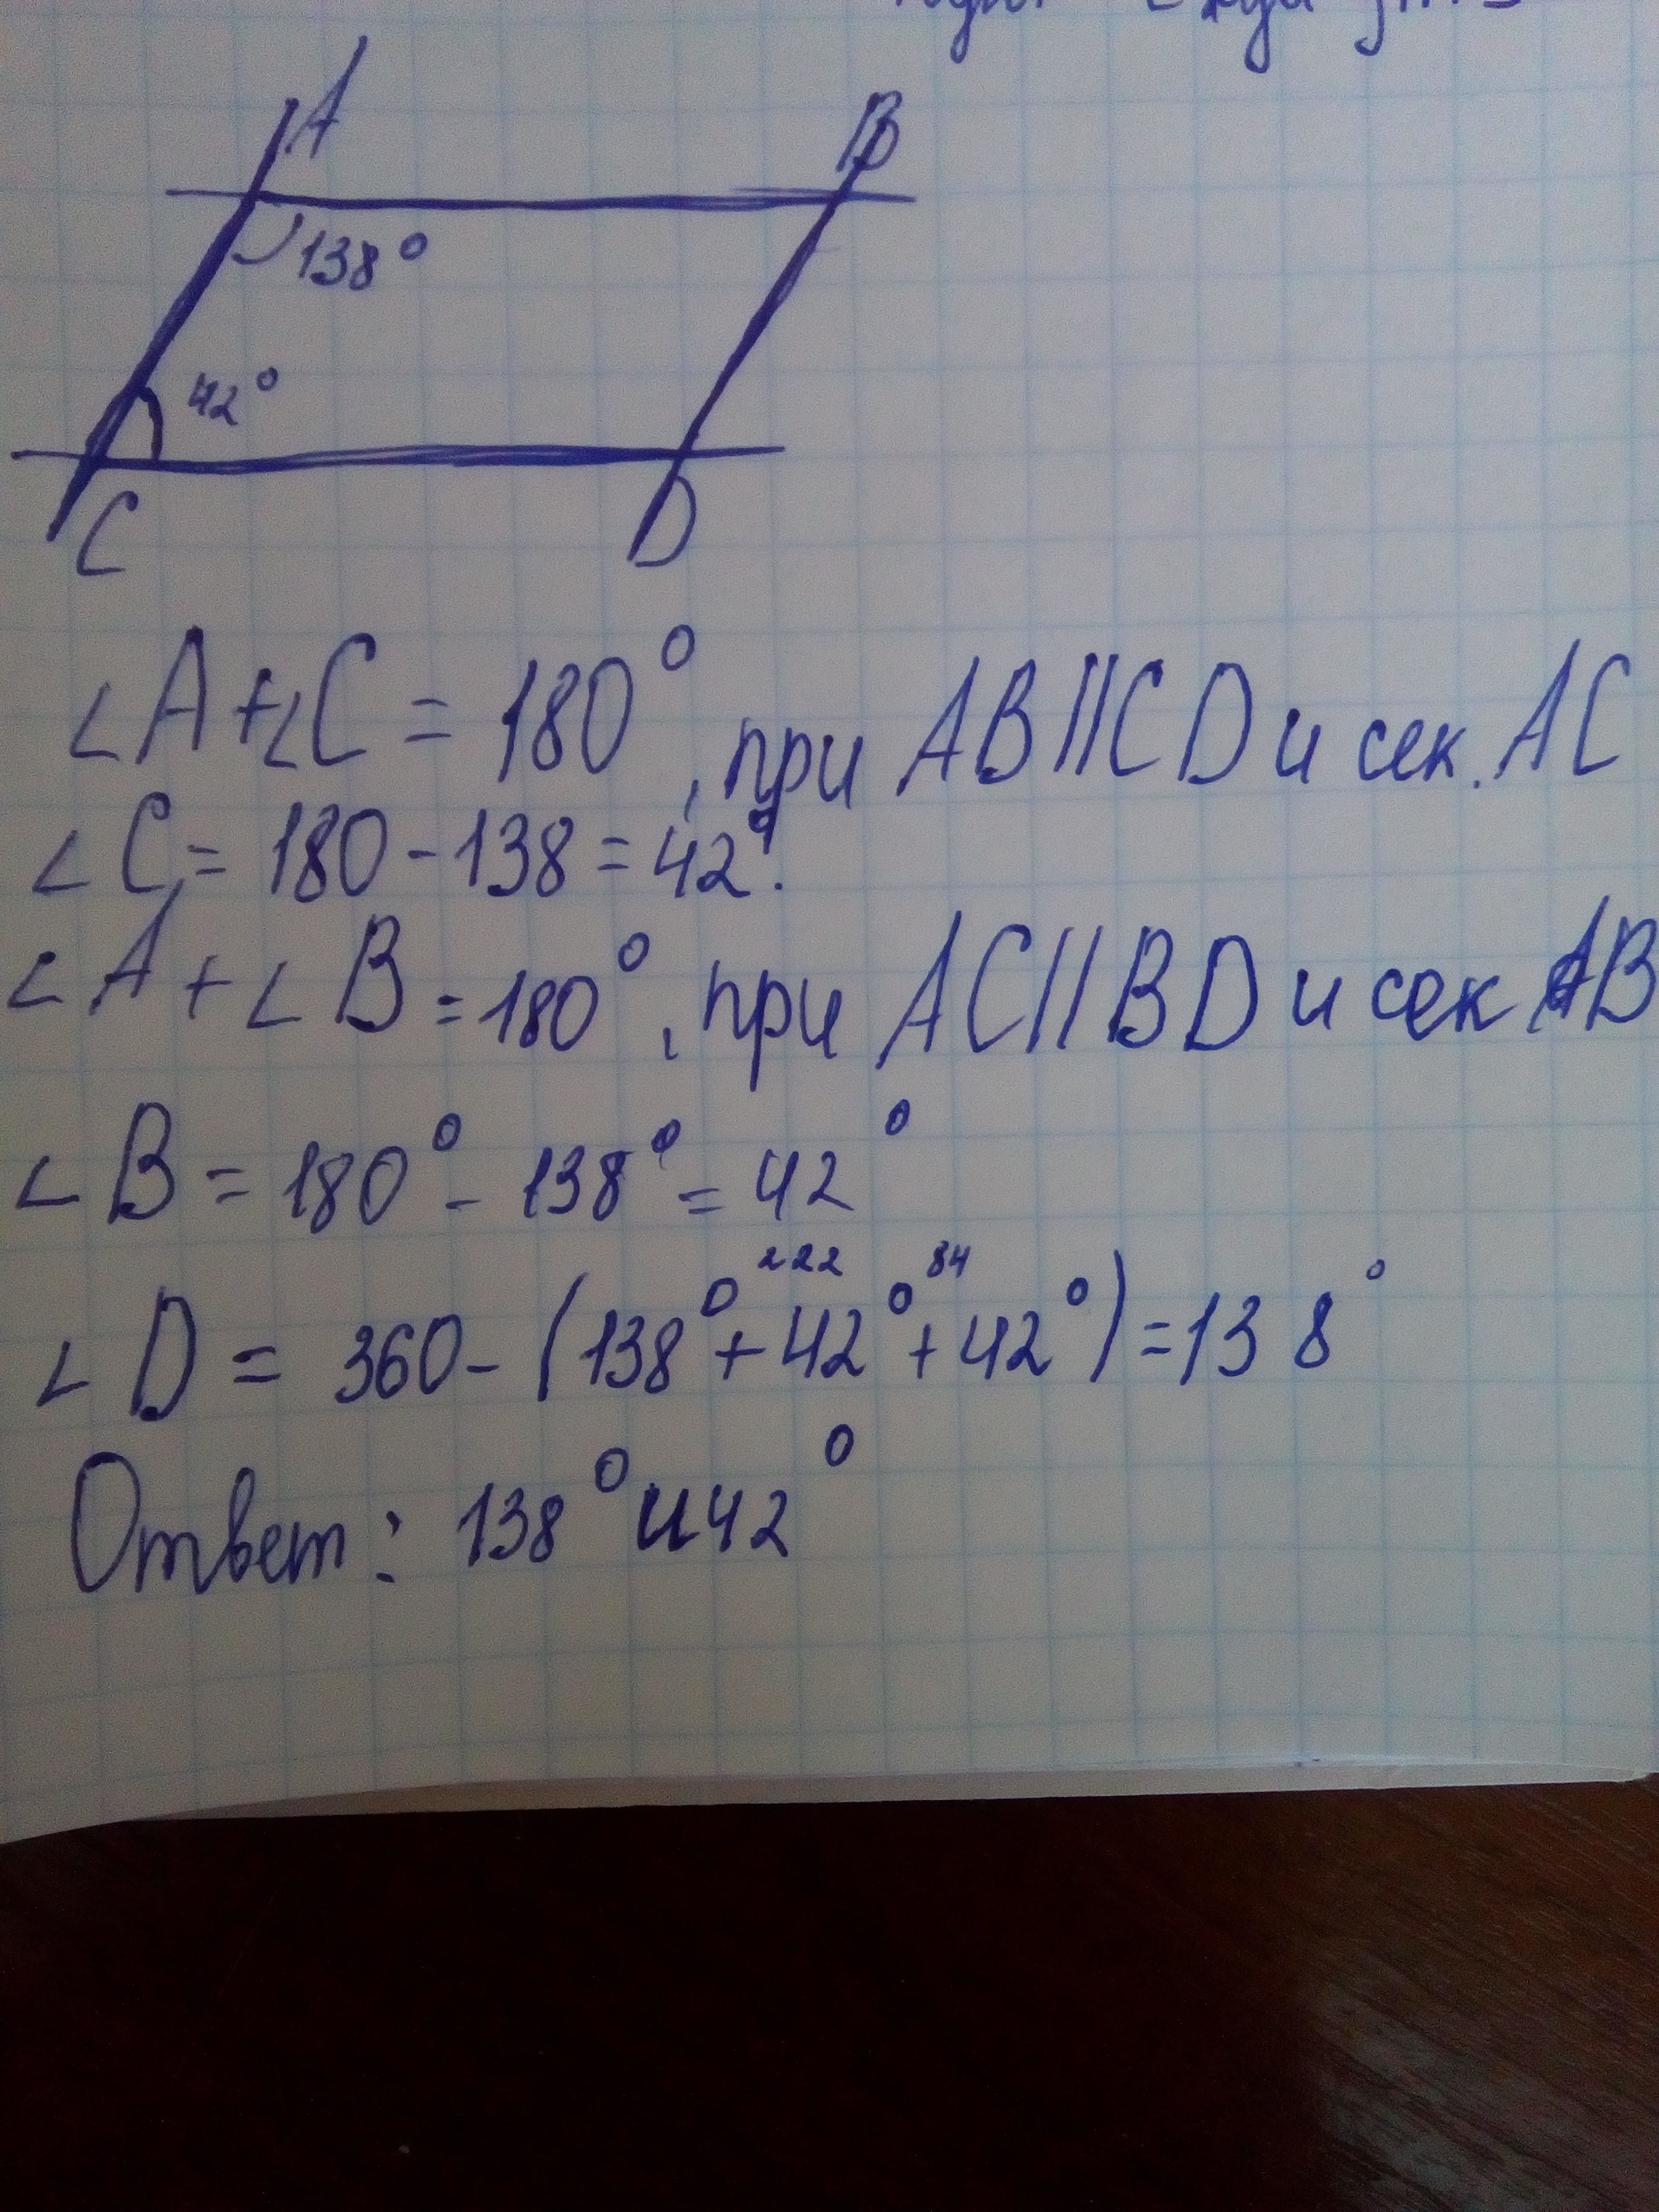 A B
138°
42°
C D
∠A+∠C = 180°, при AB||CD и сек. AC
∠C = 180-138 = 42°.
∠A + ∠B = 180°, при AC||BD и сек AB
∠B = 180° - 138° = 42°
222 84
∠D = 360-(138°+42°+42°)=138°
Ответ: 138° и 42°